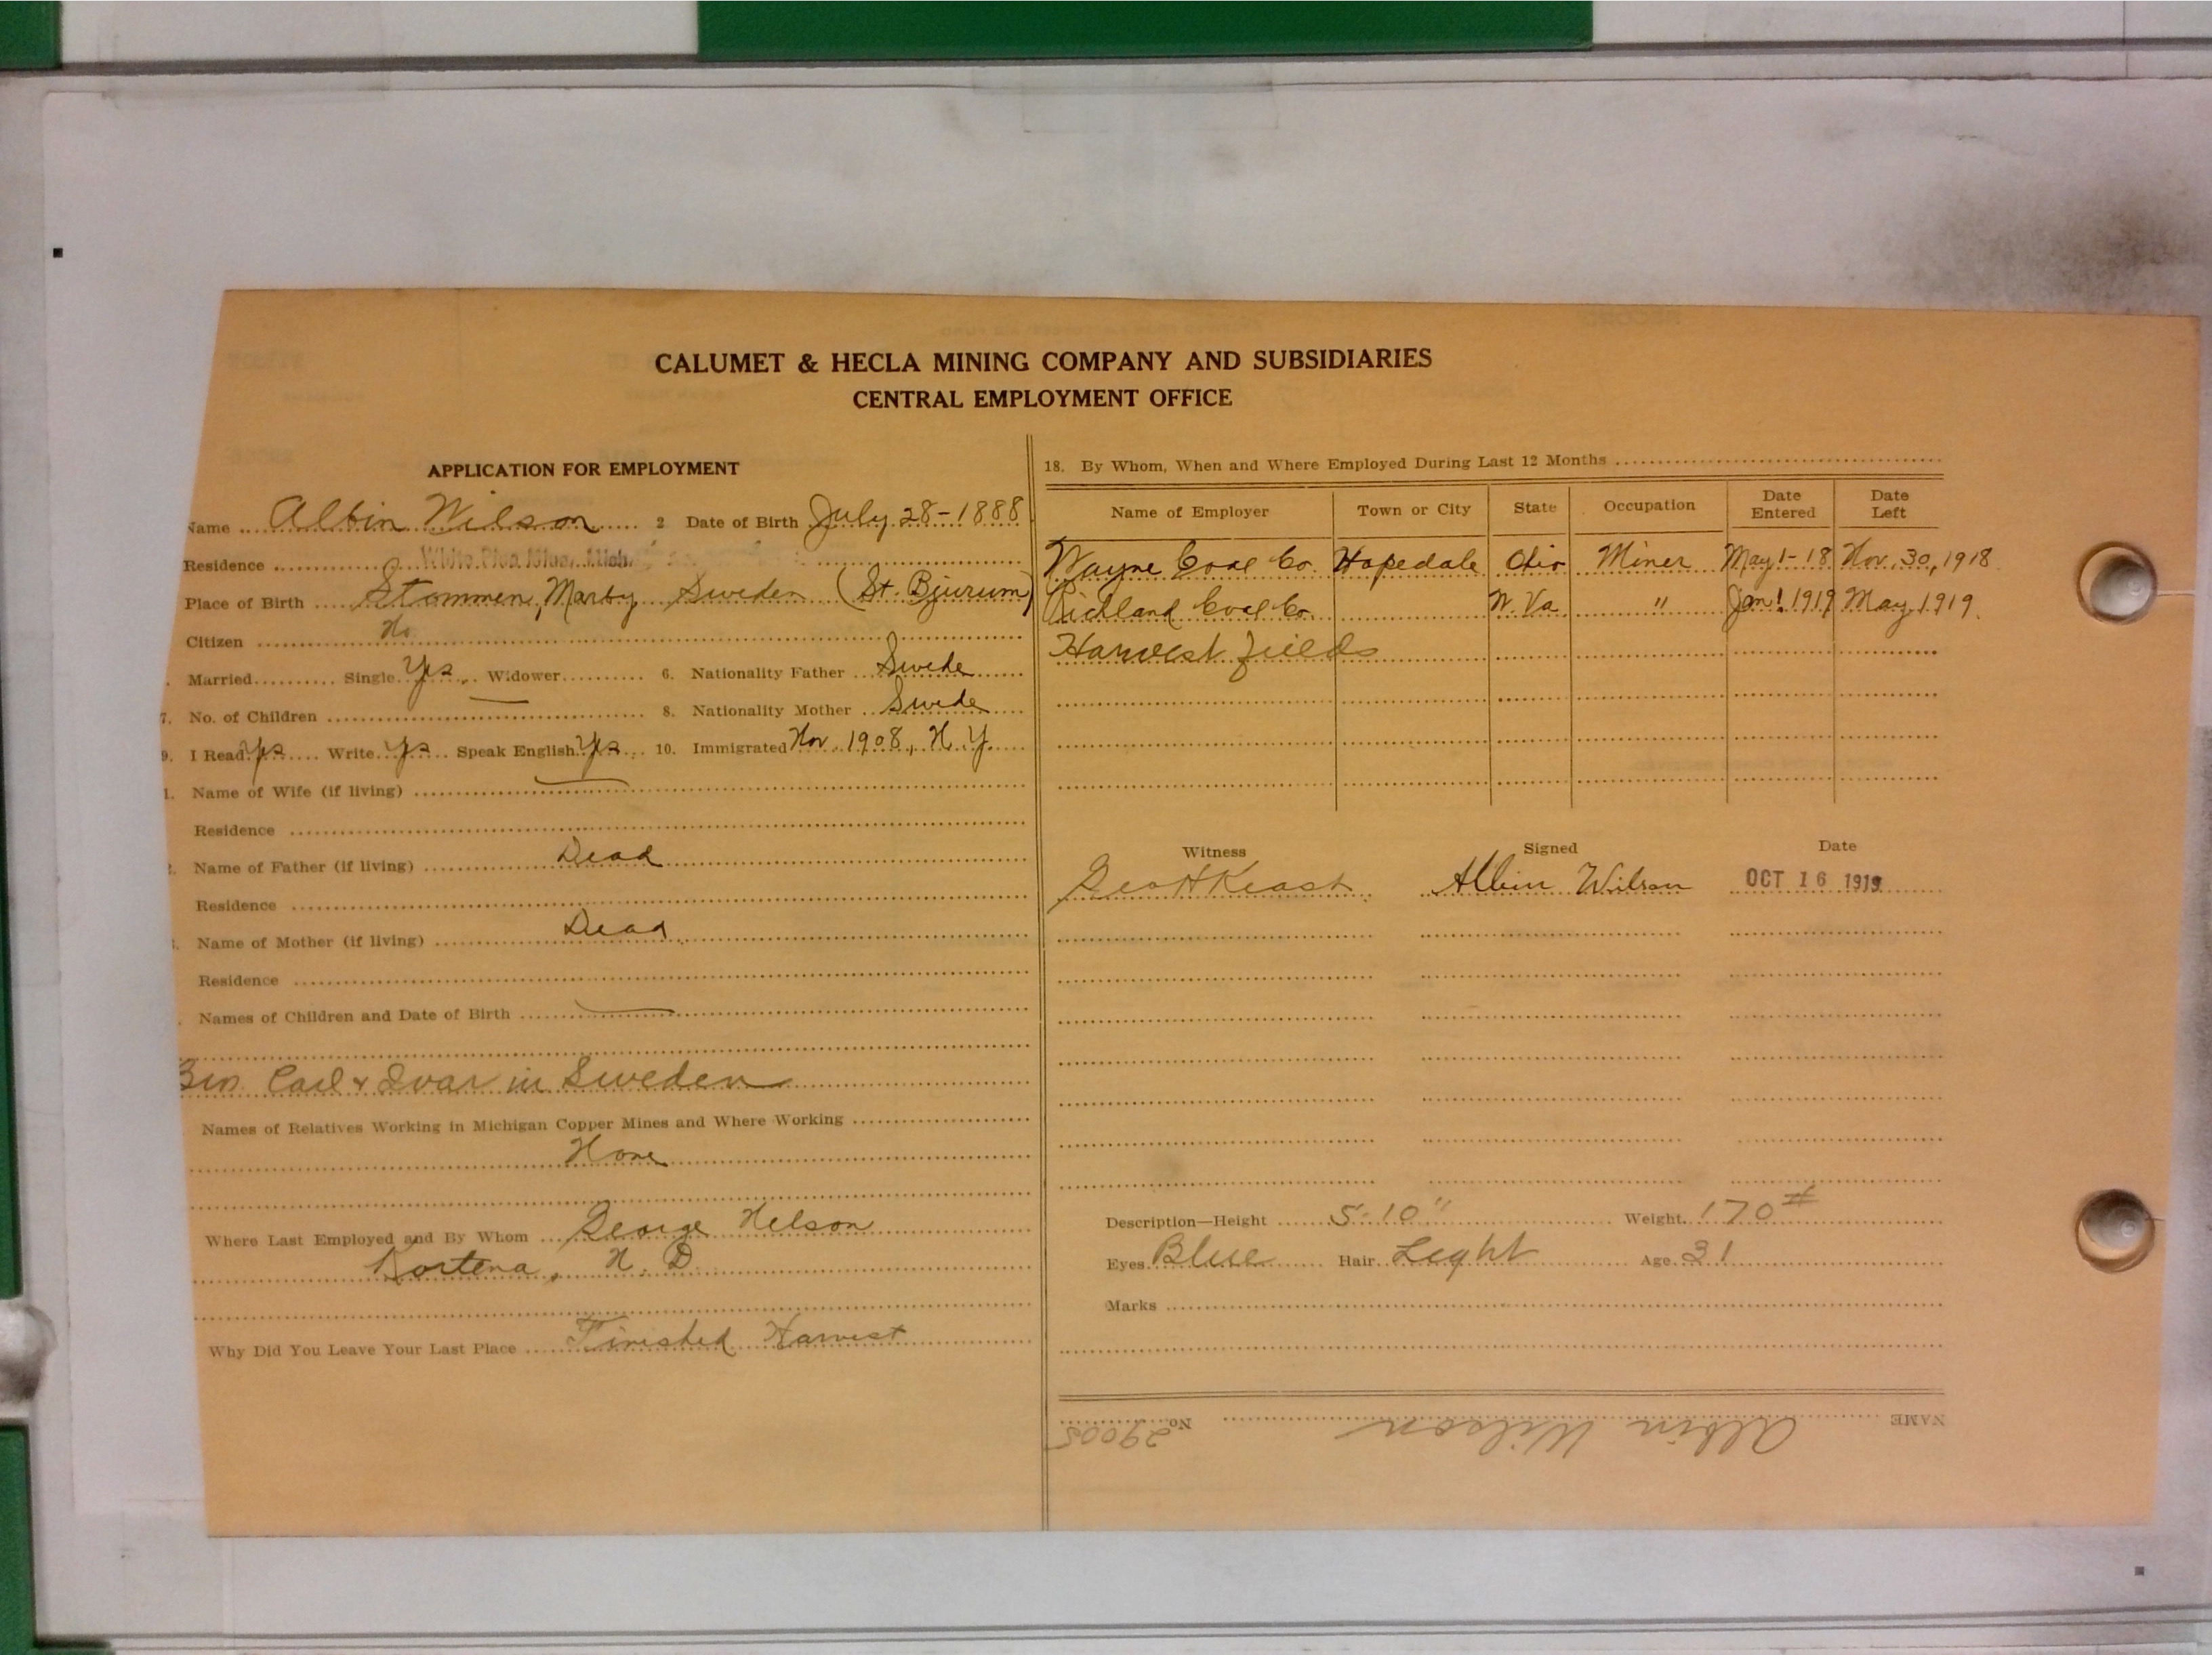 CALUMET & HECLA MINING COMPANY AND SUBSIDIARIES
CENTRAL EMPLOYMENT OFFICE
APPLICATION FOR EMPLOYMENT
Name Albin Wilson 2 Date of Birth July 28-1888
Residence White Pine Mine, Mich.
Place of Birth Stommen, Marby Sweden (St. Bjurum)
Citizen No
Married Single Yes Widower 6. Nationality Father Swede
7. No. of Children 8. Nationality Mother Swede
9. I Read Yes Write Yes Speak English Yes 10. Immigrated Nov. 1908, N.Y.
1. Name of Wife (if living)
Residence
Name of Father (if living) Dead
Residence
Name of Mother (if living) Dead
Residence
Names of Children and Date of Birth
Bro. Carl & Ivar in Sweden
Names of Relatives Working in Michigan Copper Mines and Where Working
None
Where Last Employed and By Whom George Nelson
N. D.
Why Did You Leave Your Last Place Finished Harvest
18. By Whom, When and Where Employed During Last 12 Months
Name of Employer Town or City State Occupation Date Entered Date Left
Wayne Coal Co. Hopedale Ohio Miner May 1-18 Nov. 30, 1918
Richland Coal Co. W. Va " Jan 1. 1919 May 1919.
Harvest fields
Witness Signed Date
Geo H Keast Albin Wilson OCT 16 1919
Description—Height 5-10" Weight 170#
Eyes Blue Hair Light Age 31
Marks
NAME Albin Wilson No 29005